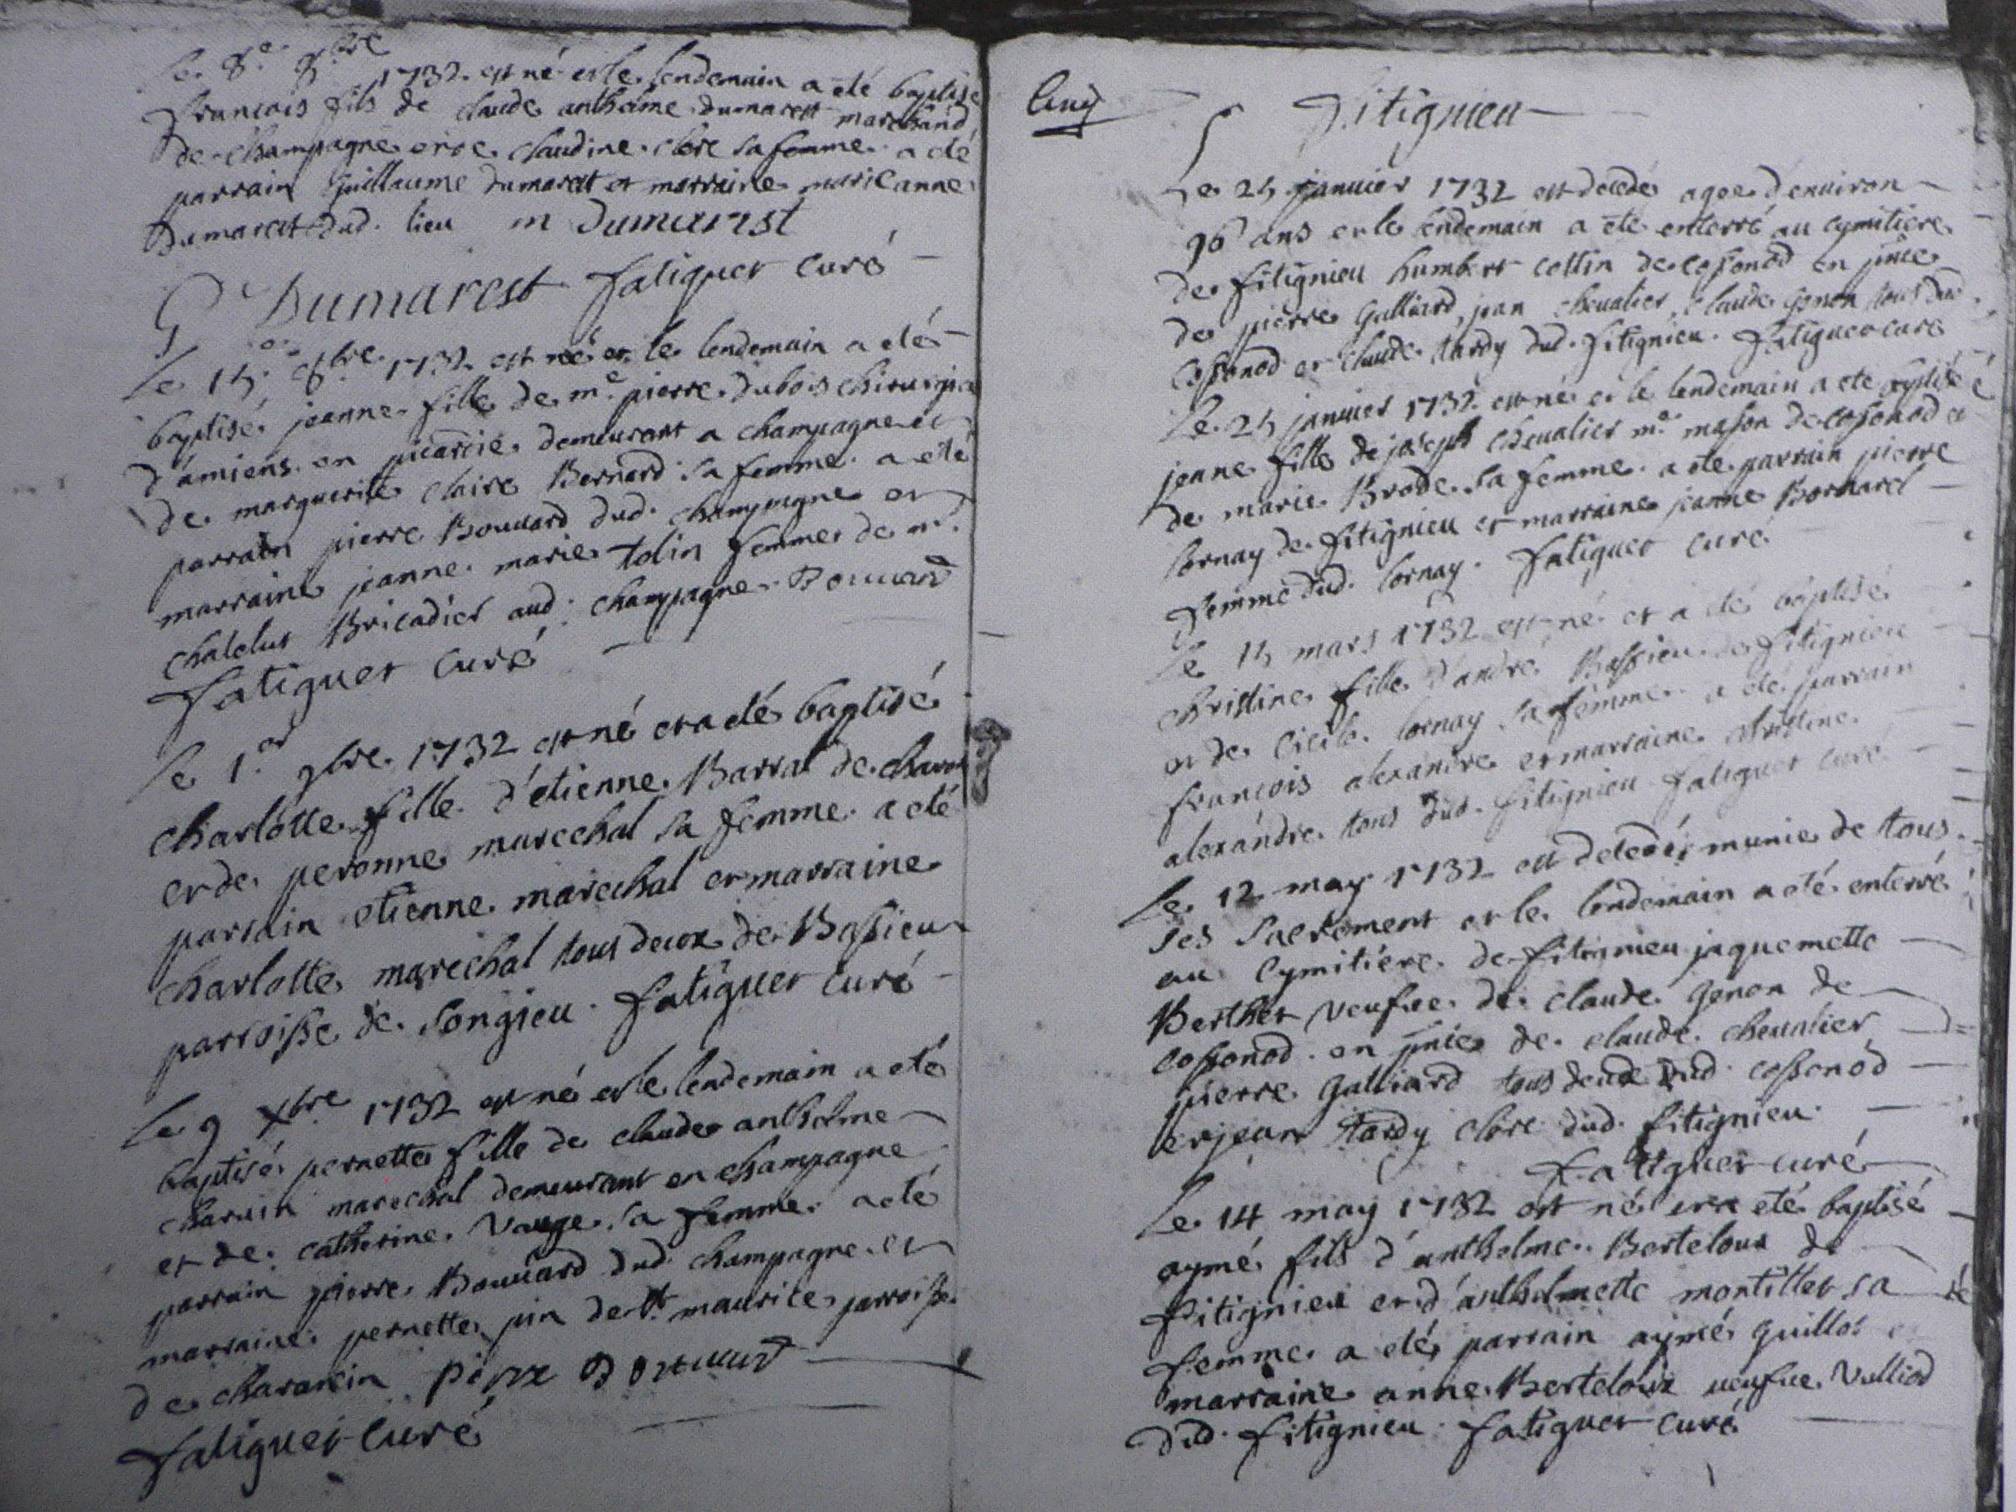 Le 8.e 8.bre 1732. est né et le lendemain a eté baptisé
francois fils de claude anthelme dumarest marchand
de champagne et de claudine clere sa femme. a eté
parrain Guillaume dumarest et marraine marieanne
Dumarest dud. lieu m Dumarest
G Dumarest fatiguet curé
Le 15. 8.bre 1732 est né et le lendemain a eté
baptisé jeanne fille de m.e pierre dubois chirurgien
d'amiens en picardie demeurant a champagne et
de marguerite claire Bernard sa femme. a eté
parrain pierre Bouuard dud. champagne et
marraine jeanne marie tolin femme de m.r
chalelut Bricadier aud. champagne. Bouuard
fatiguet curé
Le 1.er 9bre. 1732 est né et a eté baptisé
charlotte fille d'etienne Barrat de
et de peronne marechal sa femme. a eté
parrain etienne marechal et marraine
charlotte marechal tous deux de Bassieu
parroisse de Songieu. fatiguet curé
Le 9 Xbre 1732 est né et le lendemain a eté
baptisé pernette fille de claude anthelme
charuin marechal demeurant en champagne
et de catherine Vauge sa femme. a eté
parrain pierre Bouuard dud. champagne. et
marraine pernette pin de St. maurice parroisse
de charancin pierre Bouuard
fatiguet curé
Fitignieu
Le 25 januier 1732 est decedé agee d'enuiron
96 ans et le lendemain a eté enterré au cymitiere
de fitignieu humbert collin de cossonod en pnce
de pierre Galliard, jean cheualier, claude Genon tous dud.
cossonod et claude tardy dud. fitignieu. fatiguet curé
Le 25 januier 1732 est né et le lendemain a eté baptisé
jeanne fille de joseph cheualier m.e masson de cossonod et
de marie Brode sa femme. a eté parrain pierre
lornay de fitignieu et marraine jeanne Bornard
femme dud. lornay. fatiguet curé
Le 15 mars 1732 est né et a eté baptisé
christine fille d'andré Bassieu de fitignieu
et de Cicile lornay sa femme. a eté parrain
francois alexandre et marraine christine
alexandre tous dud. fitignieu fatiguet curé
Le 12 may 1732 est decedé munie de tous
ses Sacrement et le lendemain a eté enterré
au Cymitière de fitignieu jaquemette
Berthet veufue de claude Genon de
cossonod. en pnce de claude cheualier
pierre Galliard tous deux dud. cossonod
et jean tardy clerc dud. fitignieu.
fatiguet curé
Le 14 may 1732 est né et a eté baptisé
aymé fils d'anthelme Berteloux de
fitignieu et d'anthelmette montillet sa
femme. a eté parrain aymé Guillot
marraine anne Berteloux veufue Vulliod
dud. fitignieu. fatiguet curé